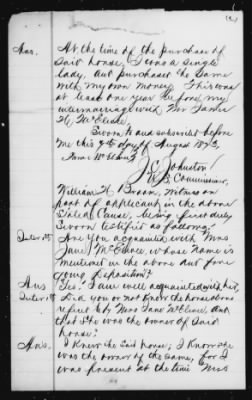 Ans. At the time of the purchase of
said house, I was a single
lady, and purchased the same
with my own money. This was
at least one year before my
intermarriage with Mr James
H. McElhose.
Sworn to and subscribed before
me this 7th day of August 1873
J C Johnston
U.S. Commissioner,
William H. Broom, witness on
part of applicant in the above
stated cause, being first duly
sworn testified as follows:
Inter 1st Are you acquainted with Mrs
Jane McElhose, whose name is
mentioned in the above and fore
going deposition?
Ans Yes. I am well acquainted with her,
Inter Did you or not know the house above
refered to by Mrs Jane McElhose, and
that she was the owner of said
house?
Ans. I knew the said house, I know she
was the owner of the same, for I
was present at the time Mrs